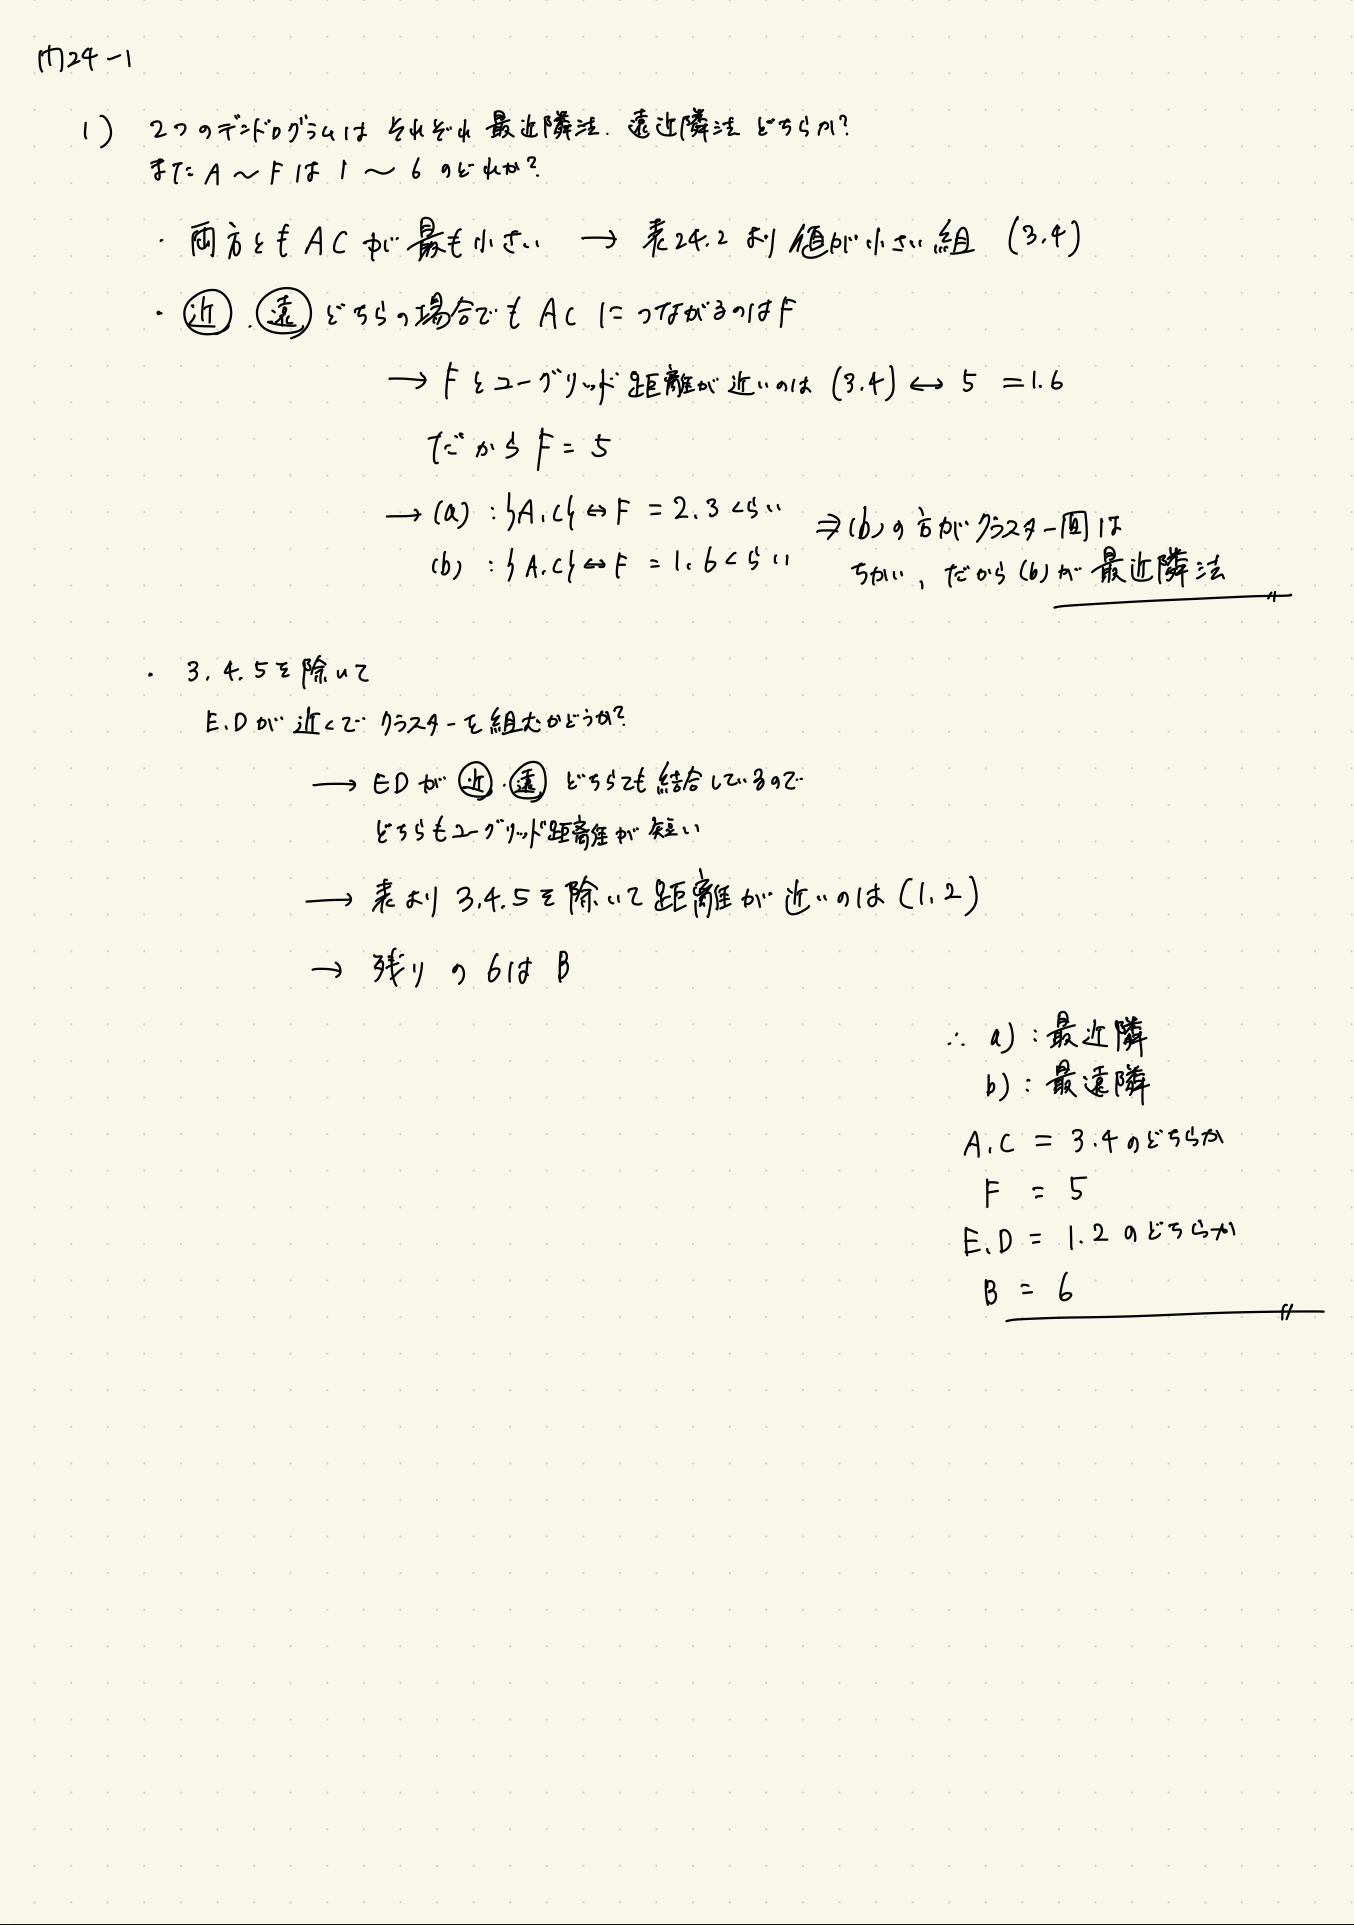 例24-1
1) 2つのデンドログラムは それぞれ 最近隣法. 遠近隣法 どちらか?
また A～F は 1～6 のどれか?
・両方とも AC が 最も小さい → 表24.2 より 値が小さい組 (3.4)
・近.遠 どちらの場合でも AC につながるのは F
→ F とユークリッド距離が近いのは (3.4) ↔ 5 = 1.6
だから F = 5
→ (a) : {A,C} ↔ F = 2.3 くらい
(b) : {A.C} ↔ F = 1.6 くらい
⇒ (b) の方がクラスター間は
ちかい, だから (b) が 最近隣法
・3.4.5 を除いて
E.D が 近くで クラスターを組むかどうか?
→ ED が 近.遠 どちらでも結合しているので
どちらもユークリッド距離が短い
→ 表より 3.4.5 を除いて距離が近いのは (1,2)
→ 残りの 6は B
∴ a) : 最近隣
b) : 最遠隣
A,C = 3.4 のどちらか
F = 5
E,D = 1.2 のどちらか
B = 6